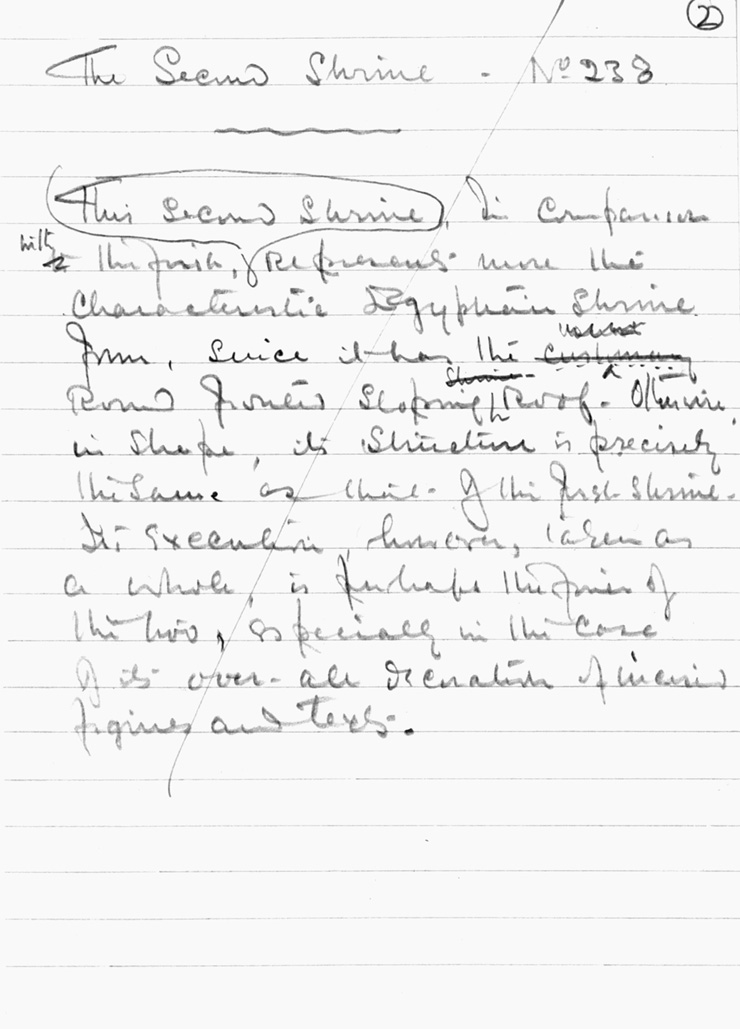 2
The Second Shrine - No 238
This Second Shrine, In comparison
with the first, represents more the
characteristic Egyptian Shrine
form, since it has the customary
Shrine
Round fronted sloping Roof. Otherwise,
in shape, its structure is precisely
the same as that of the first Shrine.
Its execution, however, taken as
a whole, is perhaps the finer of
the two, especially in the case
of its over-all decoration of incised
figures and texts.